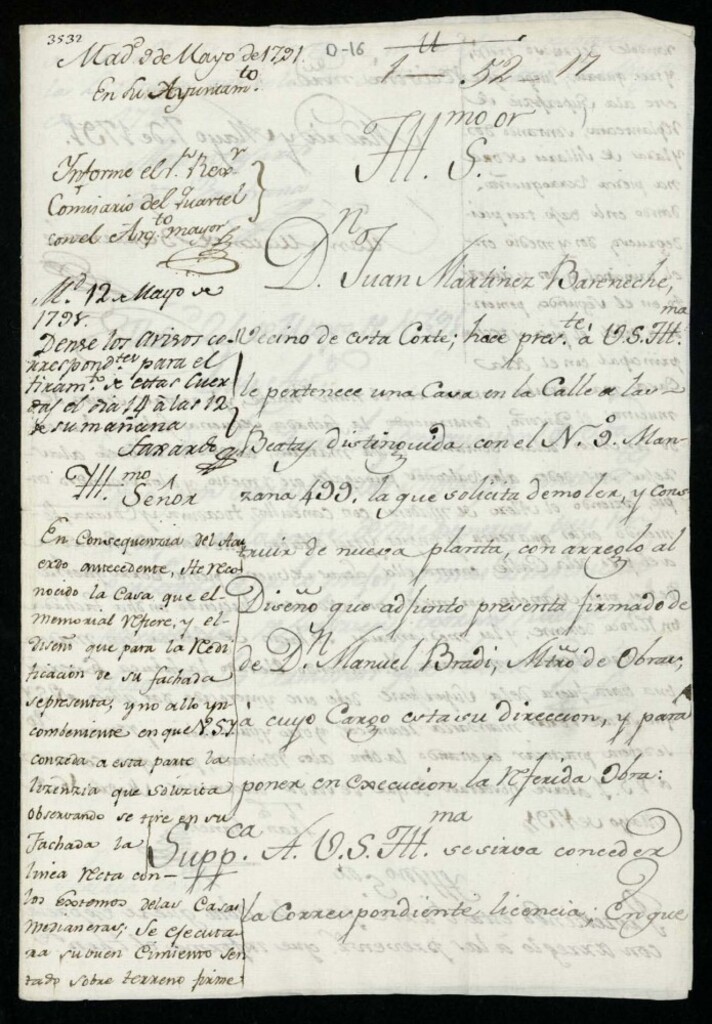 3532
Mad.d 9 de Mayo de 1791.
En su Ayuntam.to
O-16
1 52 17
Informe el S.r Rex.r
Comisario del Quartel
con el Arq.to mayor
M.d 12 de Mayo de
1791.
Dense los avisos co-
rrespond.tes para el
tiram.to de estas Cuer
das el dia 14 à las 12
de su mañana
Ill.mo Señor
En Consequenzia del Acu
erdo antecedente, He reco
nocido la Casa que el
memorial refiere, y el
diseño que para la redi
ficacion de su fachada
representa, y no allo yn
combeniente en que V.S.Y.
conzeda a esta parte la
lizenzia que solizita
observando se tire en su
Fachada la
linea recta con
los Extremos delas Casas
medianeras; Se ejecuta
ra su buen Cimiento sen
tado sobre terreno firme
Ill.mo S.or
D.n Juan Martinez Bareneche,
Vecino de esta Corte; hace pres.te à V.S.Ill.ma
le pertenece una Casa en la Calle de las
Beatas distinguida con el N.º 9. Man-
zana 499. la que solicita demoler, y cons
truir de nueva planta, con arreglo al
Diseño que adjunto presenta firmado de
de D.n Manuel Bradi, Mtro de Obras,
à cuyo Cargo esta su direccion, y para
poner en execucion la referida Obra:
Supp.ca A. V.S.Ill.ma se sirva conceder
la Correspondiente licencia; En que